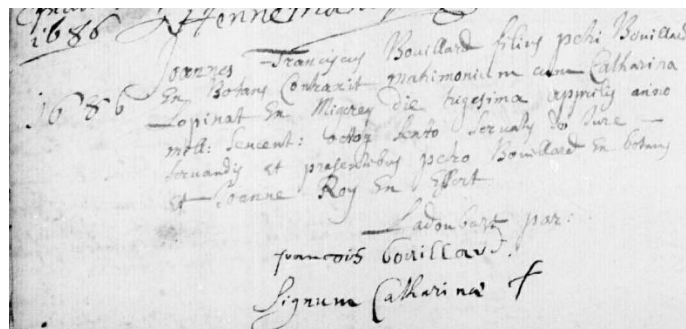 1686
Joannes Franciscus Bouillard filius petri Bouillard
1686 En Botans Contraxit matrimonium cum Catharina
Lopinat En Migrey die trigesima apprilis anno
mill: sexcent: octor servatis de Jure
servandis et presentibus petro Bouillard En botans
Et Joanne Roy En Essert
Ladoubart par:
francois bouillard.
Signum Catharinæ +